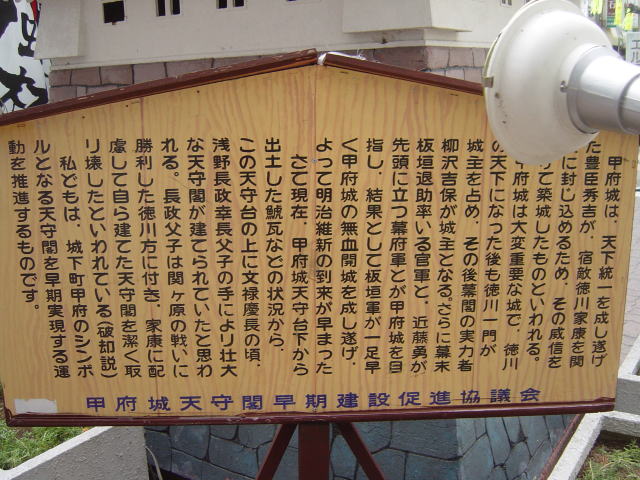 甲府城は、天下統一を成し遂げ
た豊臣秀吉が、宿敵徳川家康を関
に封じ込めるため、その威信を
て築城したものといわれる。
府城は大変重要な城で、徳川
の天下になった後も徳川一門が
城主を占め、その後幕閣の実力者
柳沢吉保が城主となる。さらに幕末
板垣退助率いる官軍と、近藤勇が
先頭に立つ幕府軍とが甲府城を目
指し、結果として板垣軍が一足早
く甲府城の無血開城を成し遂げ、
よって明治維新の到来が早まった
さて現在、甲府城天守台下から
出土した鯱瓦などの状況から、
この天守台の上に文禄慶長の頃、
浅野長政幸長父子の手により壮大
な天守閣が建てられていたと思わ
れる。長政父子は関ヶ原の戦いに
勝利した徳川方に付き、家康に配
慮して自ら建てた天守閣を潔く取
り壊したといわれている(破却説)
私どもは、城下町甲府のシンボ
ルとなる天守閣を早期実現する運
動を推進するものです。
甲府城天守閣早期建設促進協議会